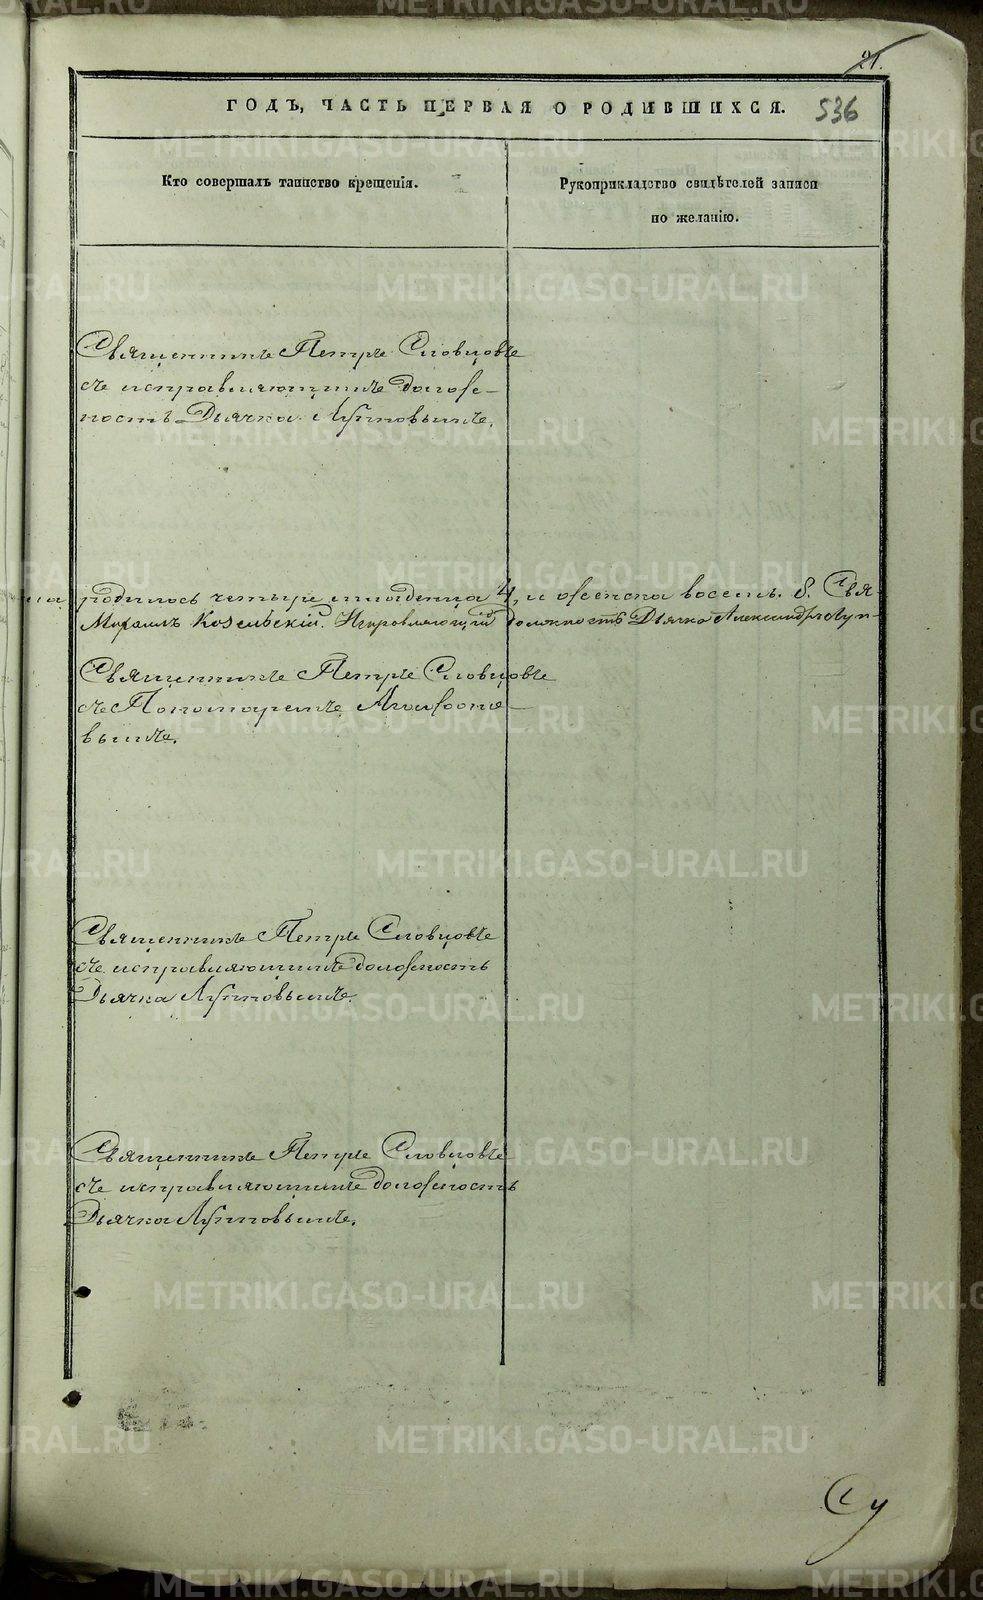 21.
ГОДЪ, ЧАСТЬ ПЕРВАЯ О РОДИВШИХСЯ. 536
Кто совершалъ таинство крещенія.
Рукоприкладство свидѣтелей записи
по желанію.
Священникъ Петръ Словцовъ
съ исправляющимъ долж-
ность Дьячка Луповымъ.
родилось четыре младенца 4, и женска восемь. 8. Свя-
Михаилъ Козельскій. Исправляющій должность Дьячка Александръ Луп-
Священникъ Петръ Словцовъ
съ Пономаремъ
вымъ.
Священникъ Петръ Словцовъ
съ исправляющимъ должность
Дьячка Луповымъ.
Священникъ Петръ Словцовъ
съ исправляющимъ должность
Дьячка Луповымъ.
METRIKI.GASO-URAL.RU